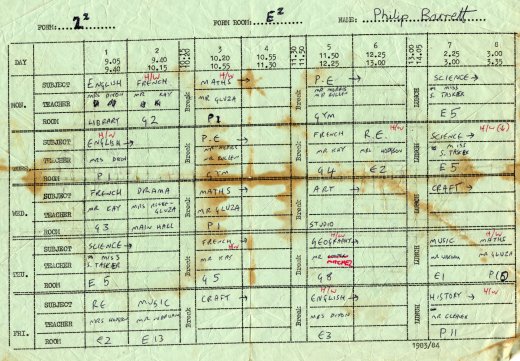 FORM: 2² FORM ROOM: E² NAME: Philip Barrett
1 2 3 4 5 6 7 8
DAY 9.05 9.40 9.40 10.15 10.15 10.20 10.20 10.55 10.55 11.30 11.30 11.50 11.50 12.25 12.25 13.00 13.00 14.05 2.25 3.00 3.00 3.35
H/W H/W
SUBJECT ENGLISH FRENCH MATHS → P.E → SCIENCE →
MON. TEACHER MRS DIXON MR KAY Break MR GLUZA Break MR LUNCH MISS S. TASKER
ROOM LIBRARY G2 P1 GYM E5
H/W H/W H/W (6)
SUBJECT ENGLISH → P.E → FRENCH R.E. SCIENCE →
TEACHER MRS DIXON MR KAY MISS S. TASKER
ROOM P1 GYM G4 E2 E5
SUBJECT FRENCH DRAMA MATHS → ART → CRAFT →
WED. TEACHER MR KAY MRS GLUZA Break MR GLUZA Break LUNCH
ROOM G3 MAIN HALL P1 STUDIO
SUBJECT SCIENCE → FRENCH H/W GEOGRAPHY → H/W MUSIC MATHS H/W
THU. TEACHER MISS S. TASKER Break MR KAY Break MR LUNCH MR GLUZA
ROOM E5 G5 G8 E1
SUBJECT RE MUSIC CRAFT → ENGLISH → H/W HISTORY → H/W
FRI. TEACHER Break Break MRS DIXON LUNCH
ROOM E2 E13 E3 P11
1983/84